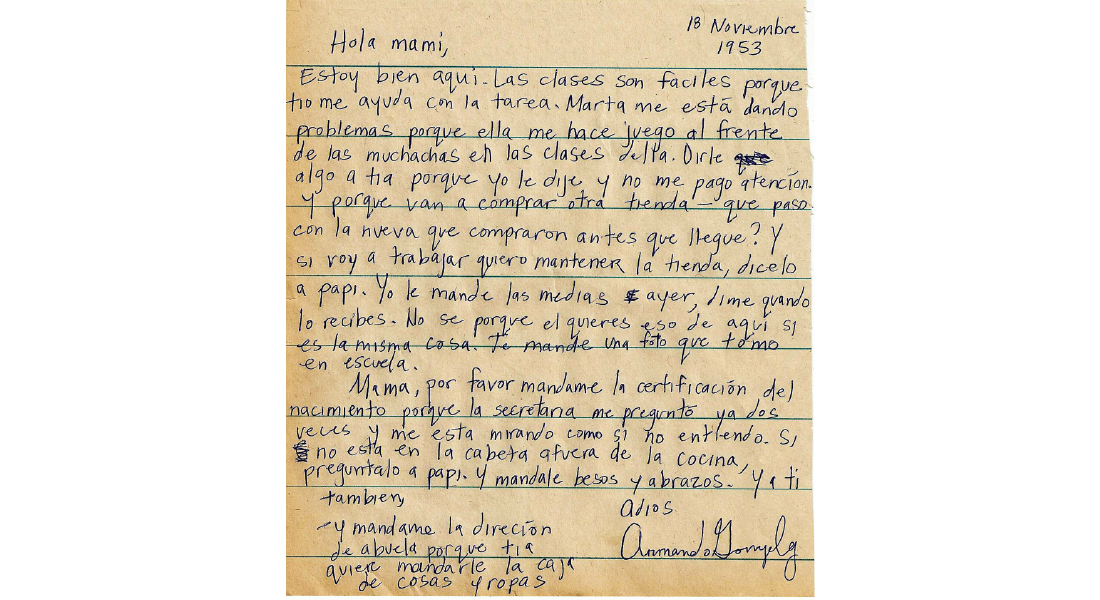 18 Noviembre
1953
Hola mami,
Estoy bien aqui. Las clases son faciles porque
tio me ayuda con la tarea. Marta me está dando
problemas porque ella me hace juego al frente
de las muchachas en las clases della. Dirle
algo a tia porque yo le dije y no me pago atencion.
Y porque van a comprar otra tienda – que paso
con la nueva que compraron antes que llegue? Y
si voy a trabajar quiero mantener la tienda, dicelo
a papi. Yo le mande las medias ayer, dime quando
lo recibes. No se porque el quieres eso de aqui si
es la misma cosa. Te mande una foto que tomo
en escuela.
Mama, por favor mandame la certificación del
nacimiento porque la secretaria me preguntó ya dos
veces y me esta mirando como si no entiendo. Si
no esta en la cabeta afuera de la cocina,
preguntalo a papi. Y mandale besos y abrazos. Y a ti
tambien,
adios
Armando
-Y mandame la direción
de abuela porque tia
quiere mandarle la caja
de cosas y ropas